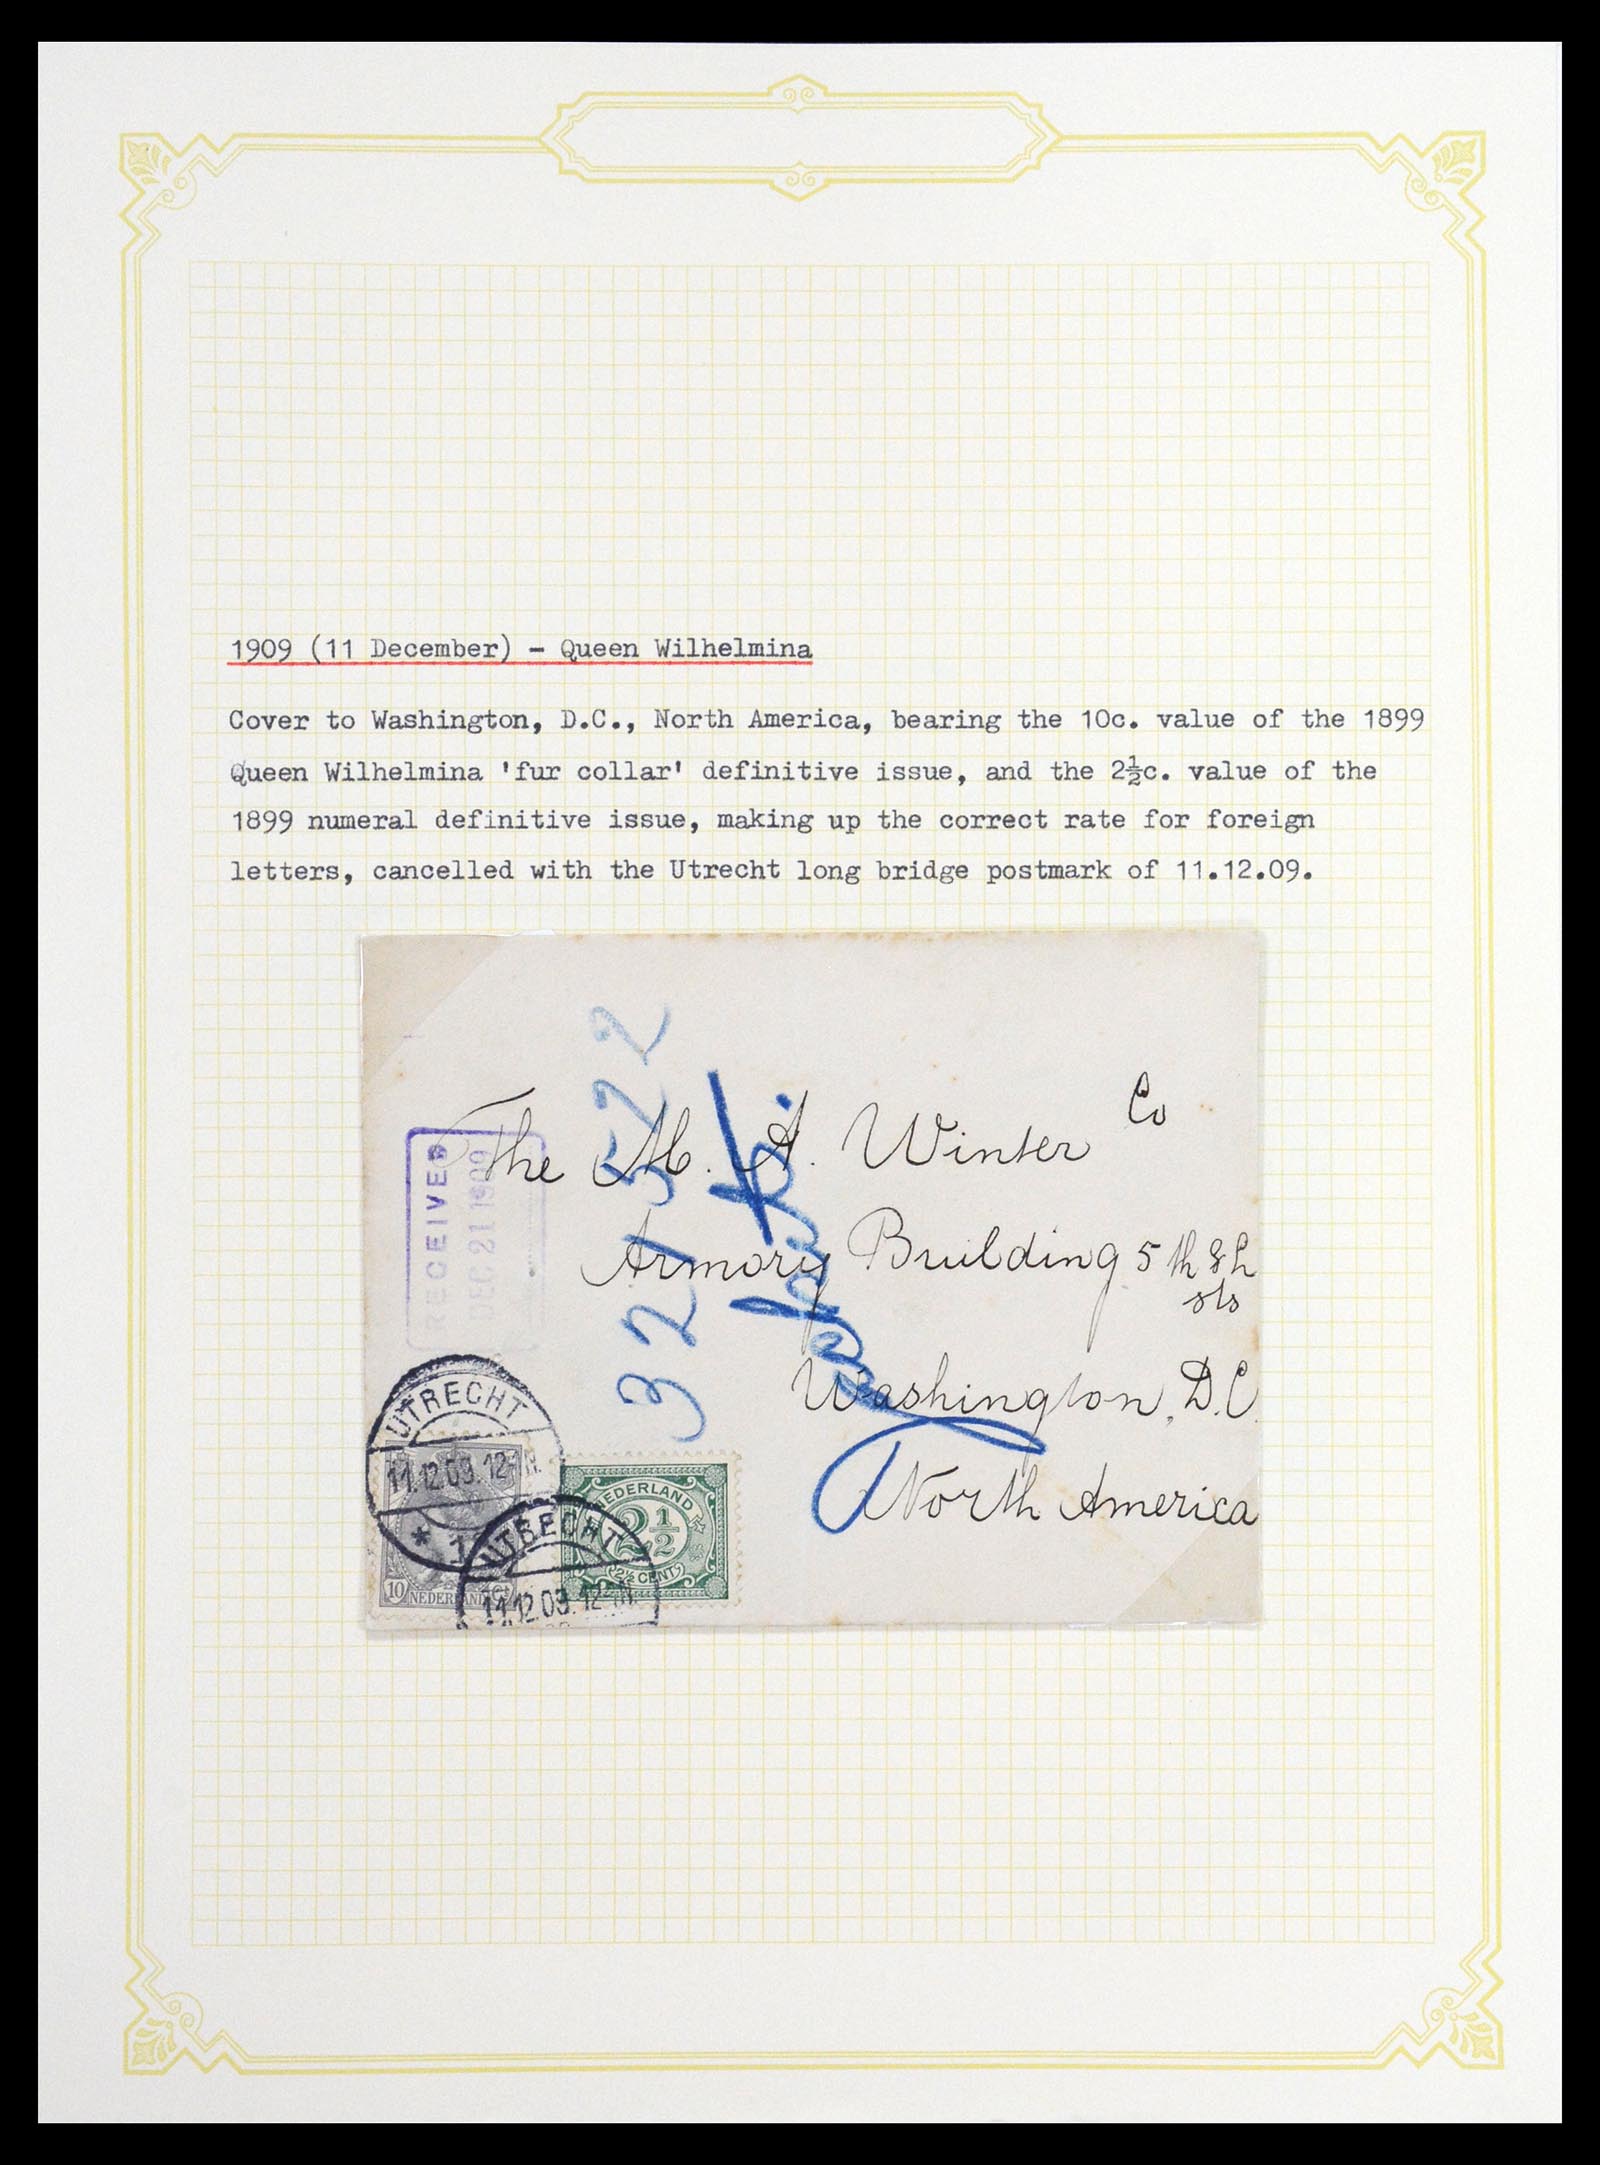 1909 (11 December) - Queen Wilhelmina
Cover to Washington, D.C., North America, bearing the 10c. value of the 1899
Queen Wilhelmina 'fur collar' definitive issue, and the 2½c. value of the
1899 numeral definitive issue, making up the correct rate for foreign
letters, cancelled with the Utrecht long bridge postmark of 11.12.09.
The M. A. Winter Co
Armory Building 5th & L
sts
Washington, D.C.
North America
RECEIVED
DEC 21 1909
321522
UTRECHT
11.12.09.12-1N.
* 1
10 NEDERLAND
NEDERLAND
2 1/2
(2½ CENT)
UTRECHT
11.12.09.12-1N